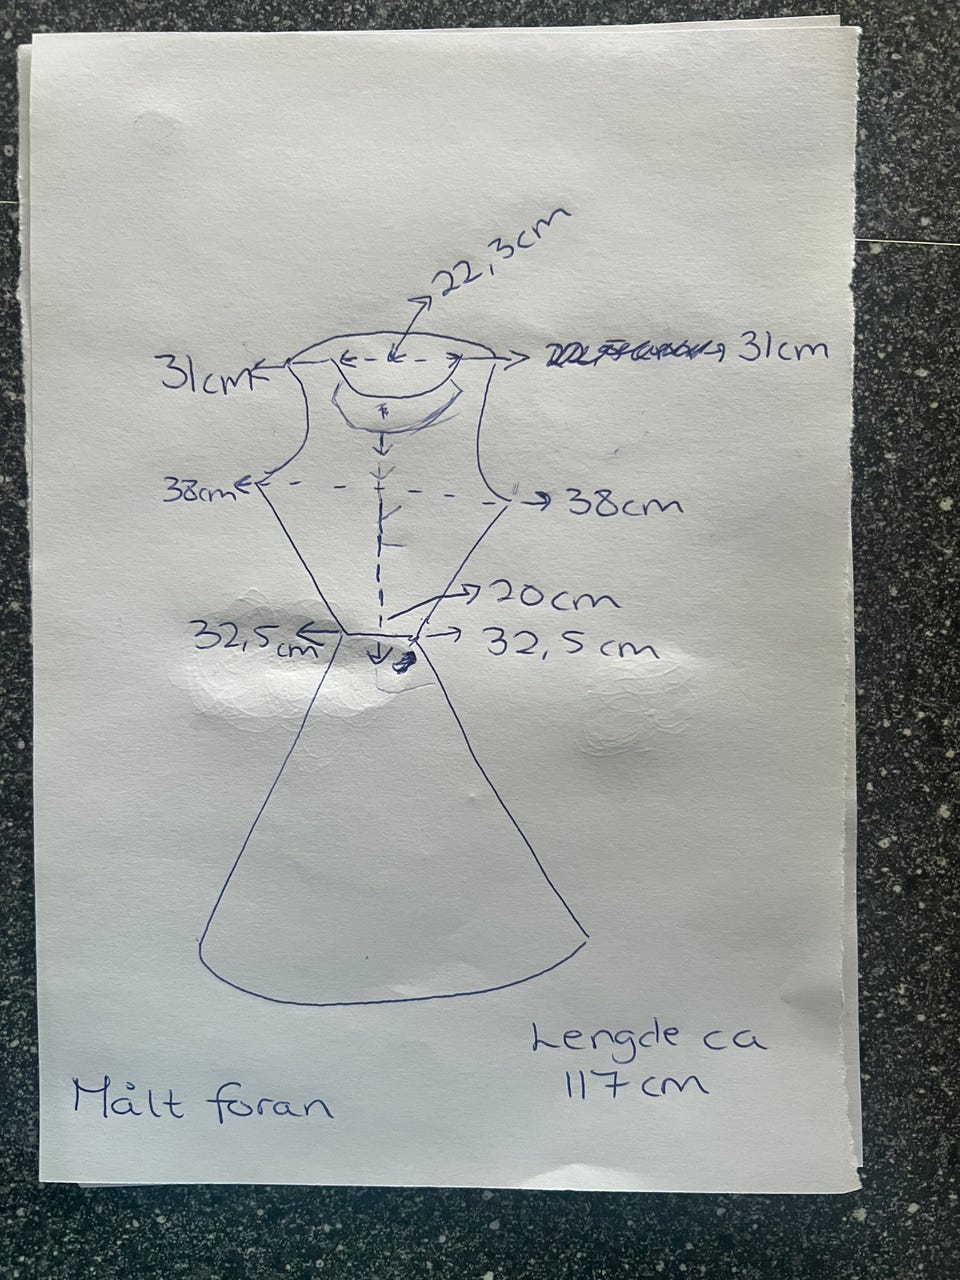 22,3cm
31cm
31cm
38cm
38cm
20cm
32,5cm
32,5 cm
Lengde ca
117 cm
Målt foran